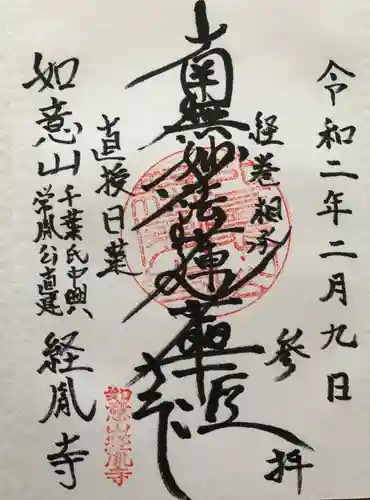 令和二年二月九日
参拝
経巻相承
南無妙法蓮華経
直授日蓮
如意山
千葉氏中興
常胤公直建
経胤寺
如意山経胤寺